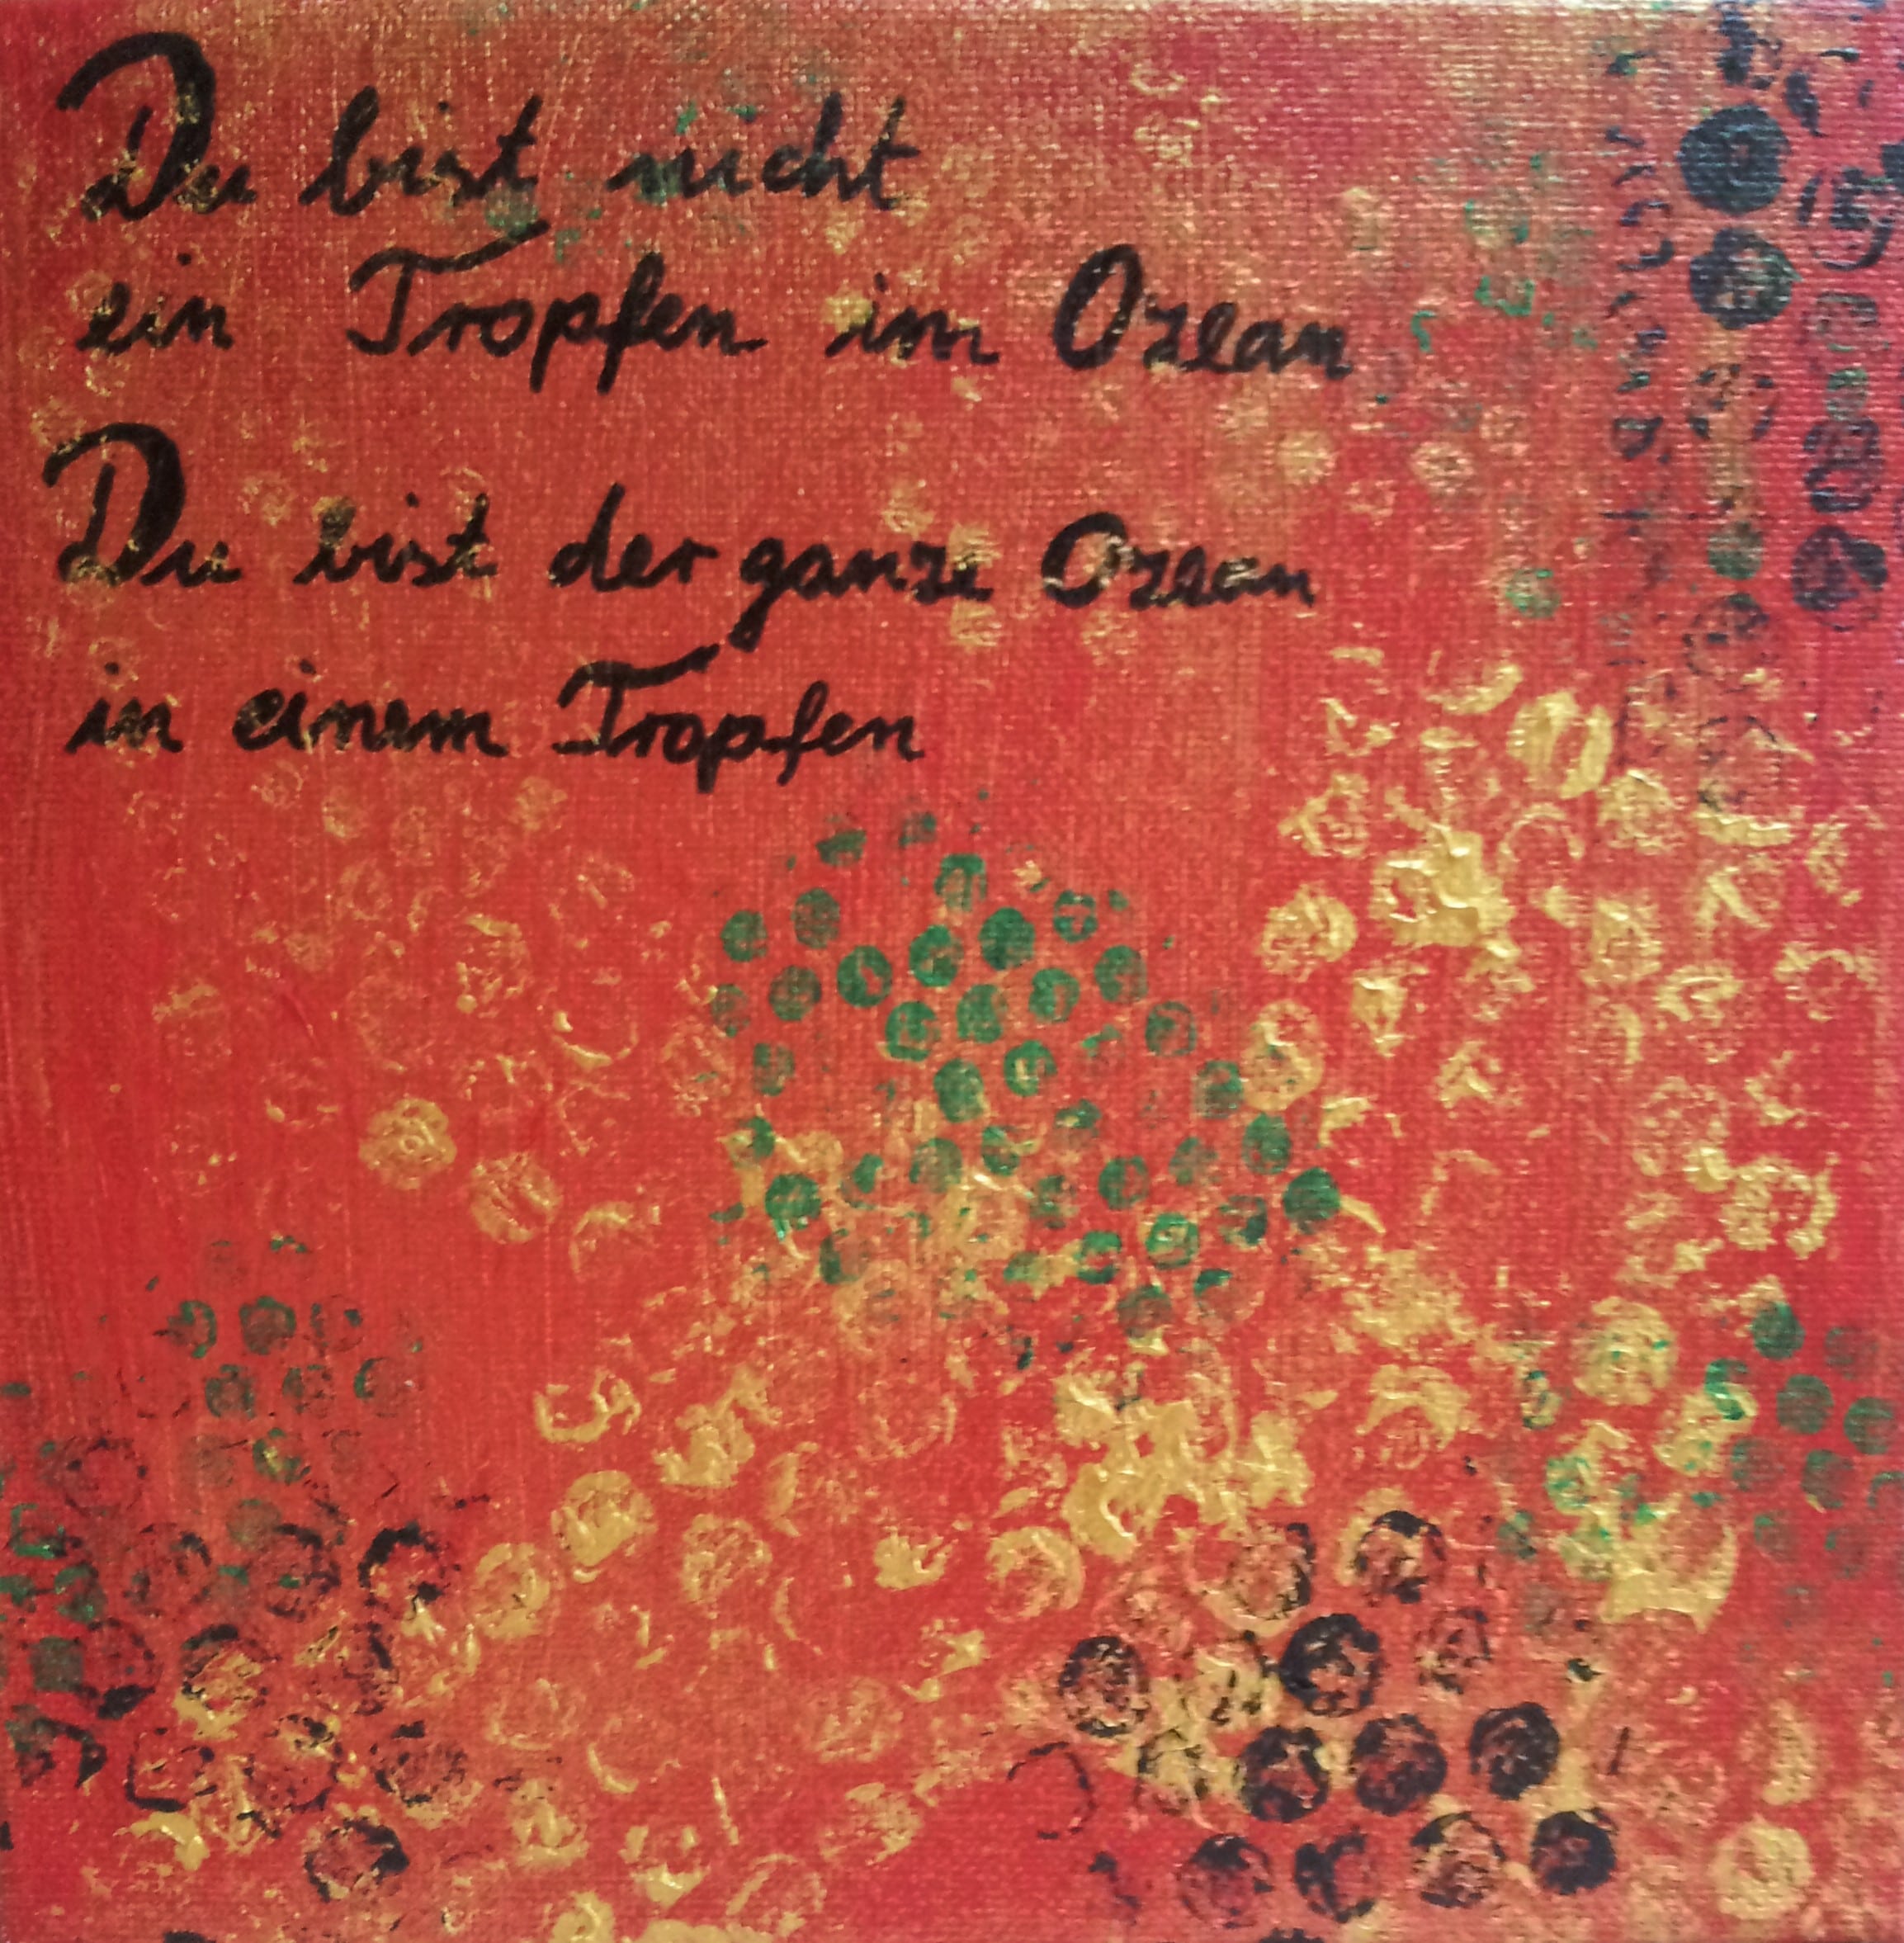 Du bist nicht
ein Tropfen im Ozean
Du bist der ganze Ozean
in einem Tropfen